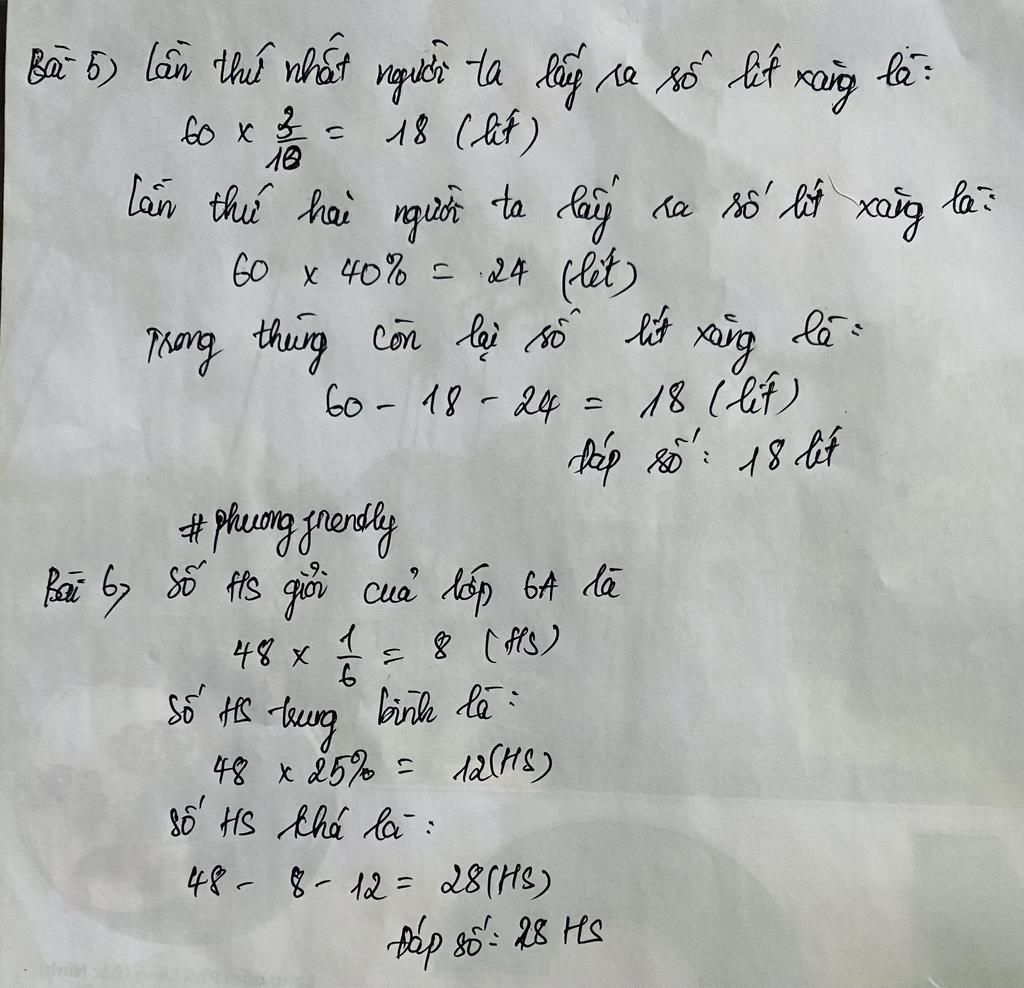 Bài 5) Lần thứ nhất người ta lấy ra số lít xăng là:
60 x 3/10 = 18 (lít)
Lần thứ hai người ta lấy ra số lít xăng là:
60 x 40% = 24 (lít)
Trong thùng còn lại số lít xăng là:
60 - 18 - 24 = 18 (lít)
Đáp số: 18 lít
# phuong frendly
Bài 6) Số HS giỏi của lớp 6A là
48 x 1/6 = 8 (HS)
Số HS trung bình là:
48 x 25% = 12(HS)
Số HS khá là:
48 - 8 - 12 = 28(HS)
Đáp số: 28 HS